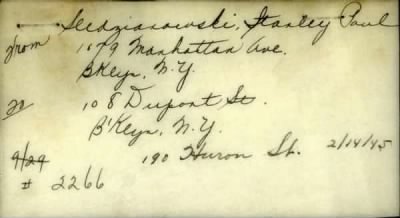 Sledzianowski, Stanley Paul
from 1179 Manhattan Ave.
BKlyn, N.Y.
to 108 Dupont St.
B'Klyn, N.Y.
9/29 190 Huron St. 2/14/45
# 2266